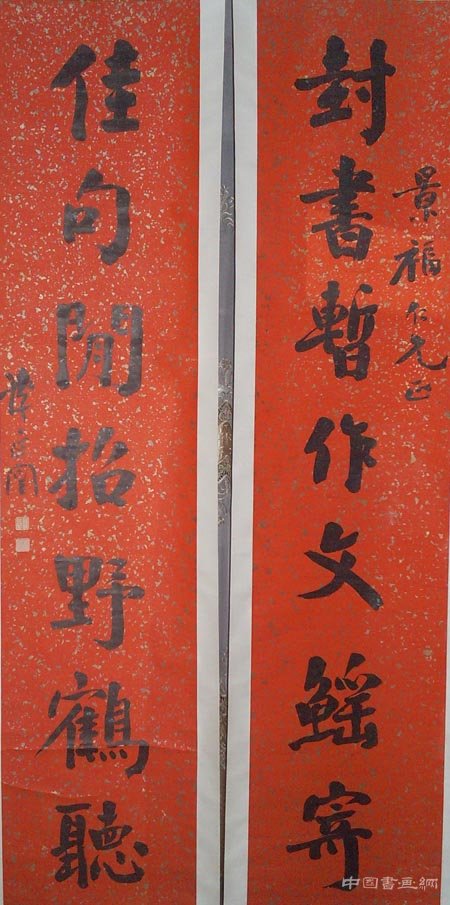 景福仁兄正
封書暫作文鰩寄
佳句閒招野鶴聽
中国書画網